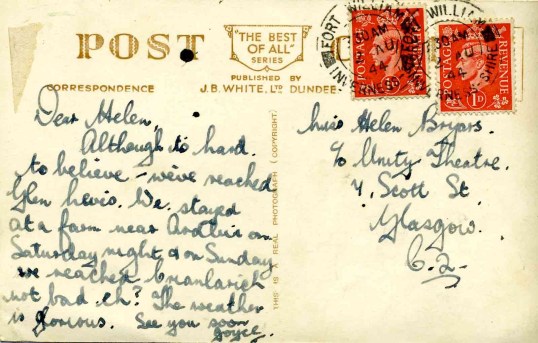 POST C
"THE BEST
OF ALL"
SERIES
PUBLISHED BY
J. B. WHITE, LTD DUNDEE
CORRESPONDENCE
THIS IS A REAL PHOTOGRAPH (COPYRIGHT)
FORT WILLIAM
AU
44
INVERNESS-SHIRE
POSTAGE REVENUE
1D
WILLIAM
30 AM
AU
44
NESS-SHIRE
POSTAGE REVENUE
1D
Dear Helen,
Although it's hard
to believe - we've reached
Glen Nevis. We stayed
at a farm near Ardlui on
Saturday night & on Sunday
we reached Crianlarich
not bad eh? The weather
is glorious. See you soon
Joyce.
Miss Helen Bryars.
c/o Unity Theatre.
Scott St
Glasgow.
C.2.